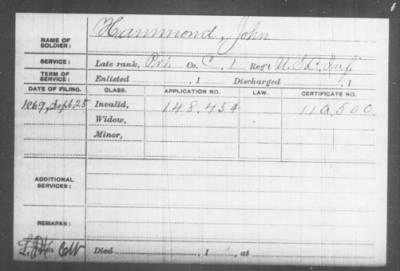 NAME OF SOLDIER: Hammond, John
SERVICE: Late rank, Prt. Co. C. 1 Reg't U.S. Inf
TERM OF SERVICE: Enlisted , 1 Discharged , 1
DATE OF FILING. CLASS. APPLICATION NO. LAW. CERTIFICATE NO.
1869, Sept 25 Invalid, 148.454 110.500
Widow,
Minor,
ADDITIONAL SERVICES:
REMARKS:
Died , 1 , at